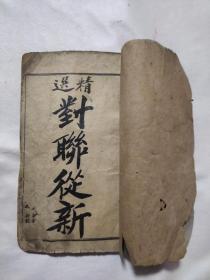 精選
對聯從新